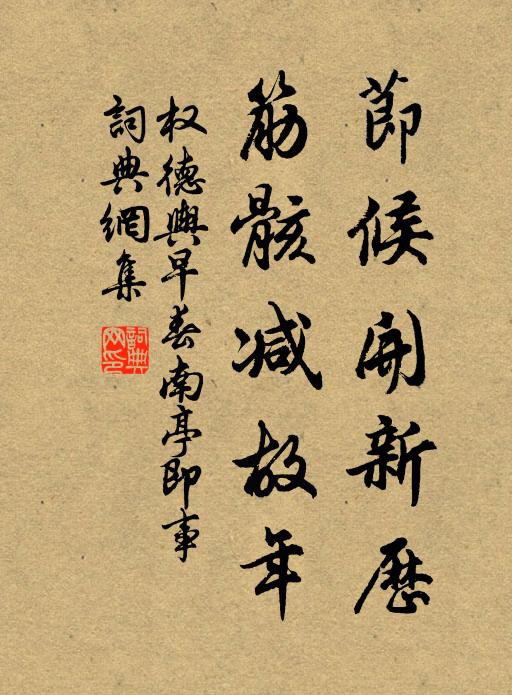 節候開新歷
筋骸減故年
权德輿早春南亭即事
詞典網集
詞典網印